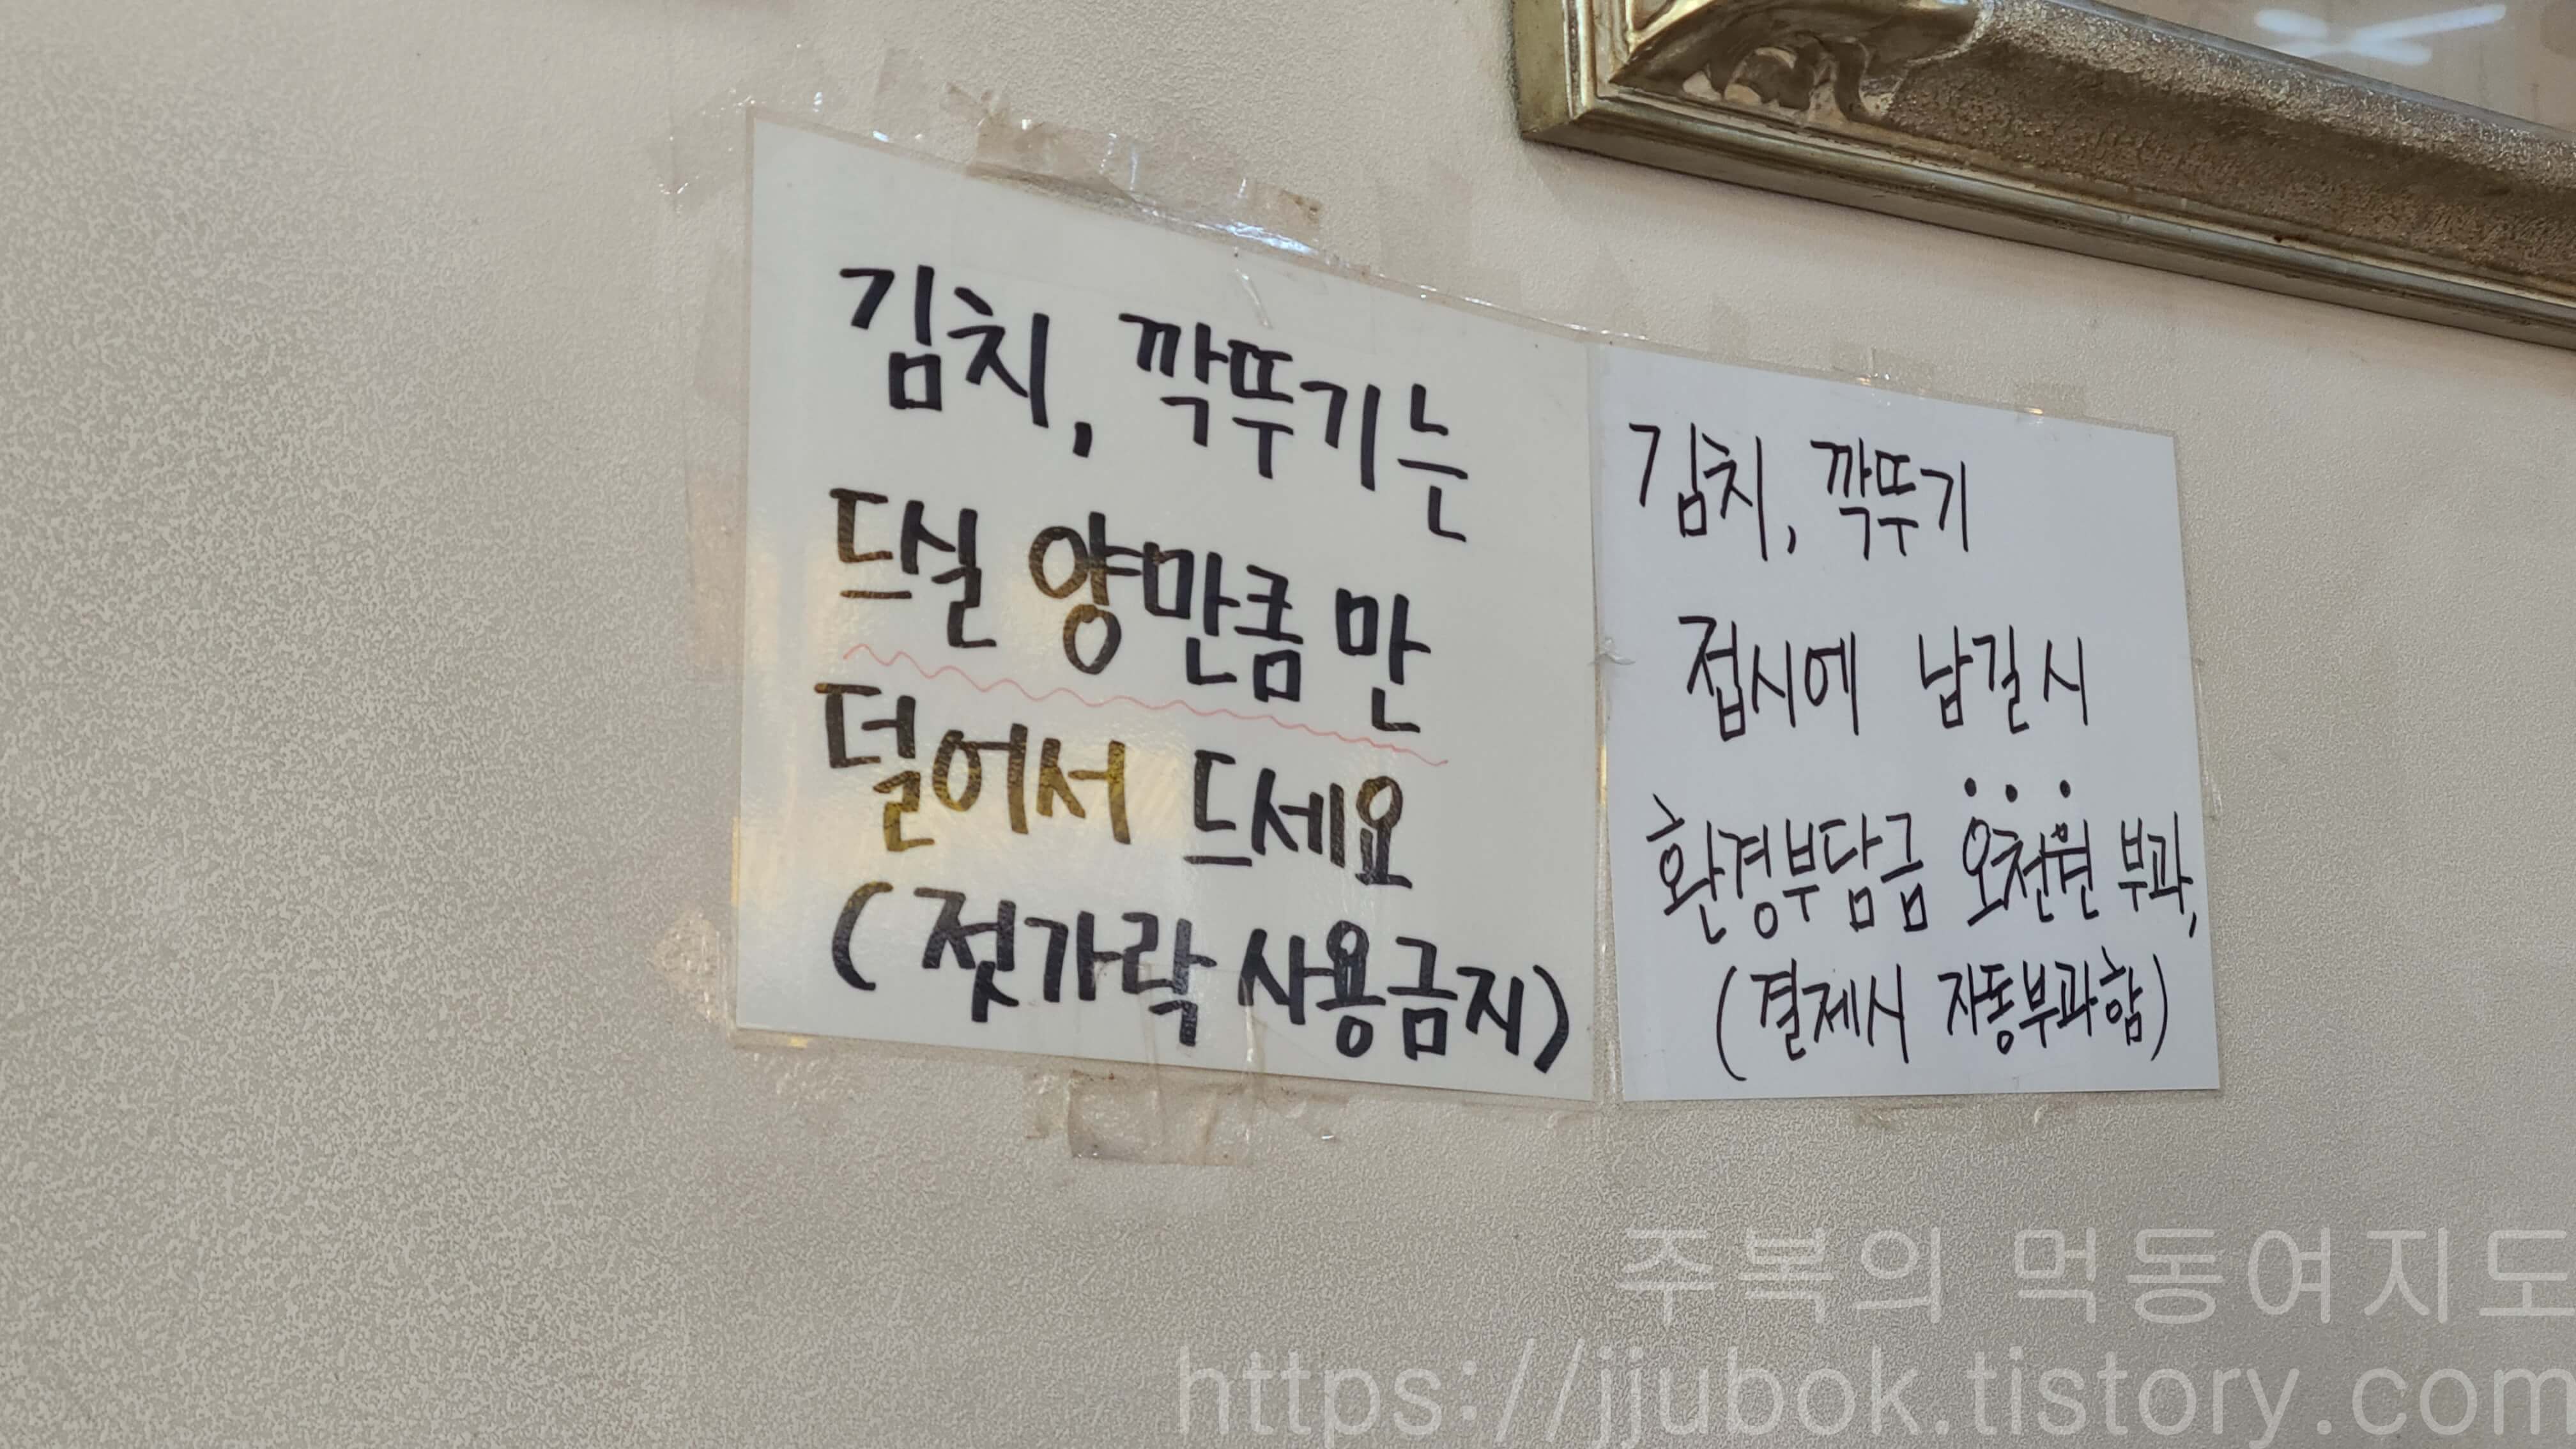 김치, 깍뚜기는
드실 양만큼 만
덜어서 드세요
(젓가락 사용금지)
김치, 깍뚜기
접시에 남길시
환경부담금 오천원 부과,
(결제시 자동부과함)
주복의 먹동여지도
https://jjubok.tistory.com